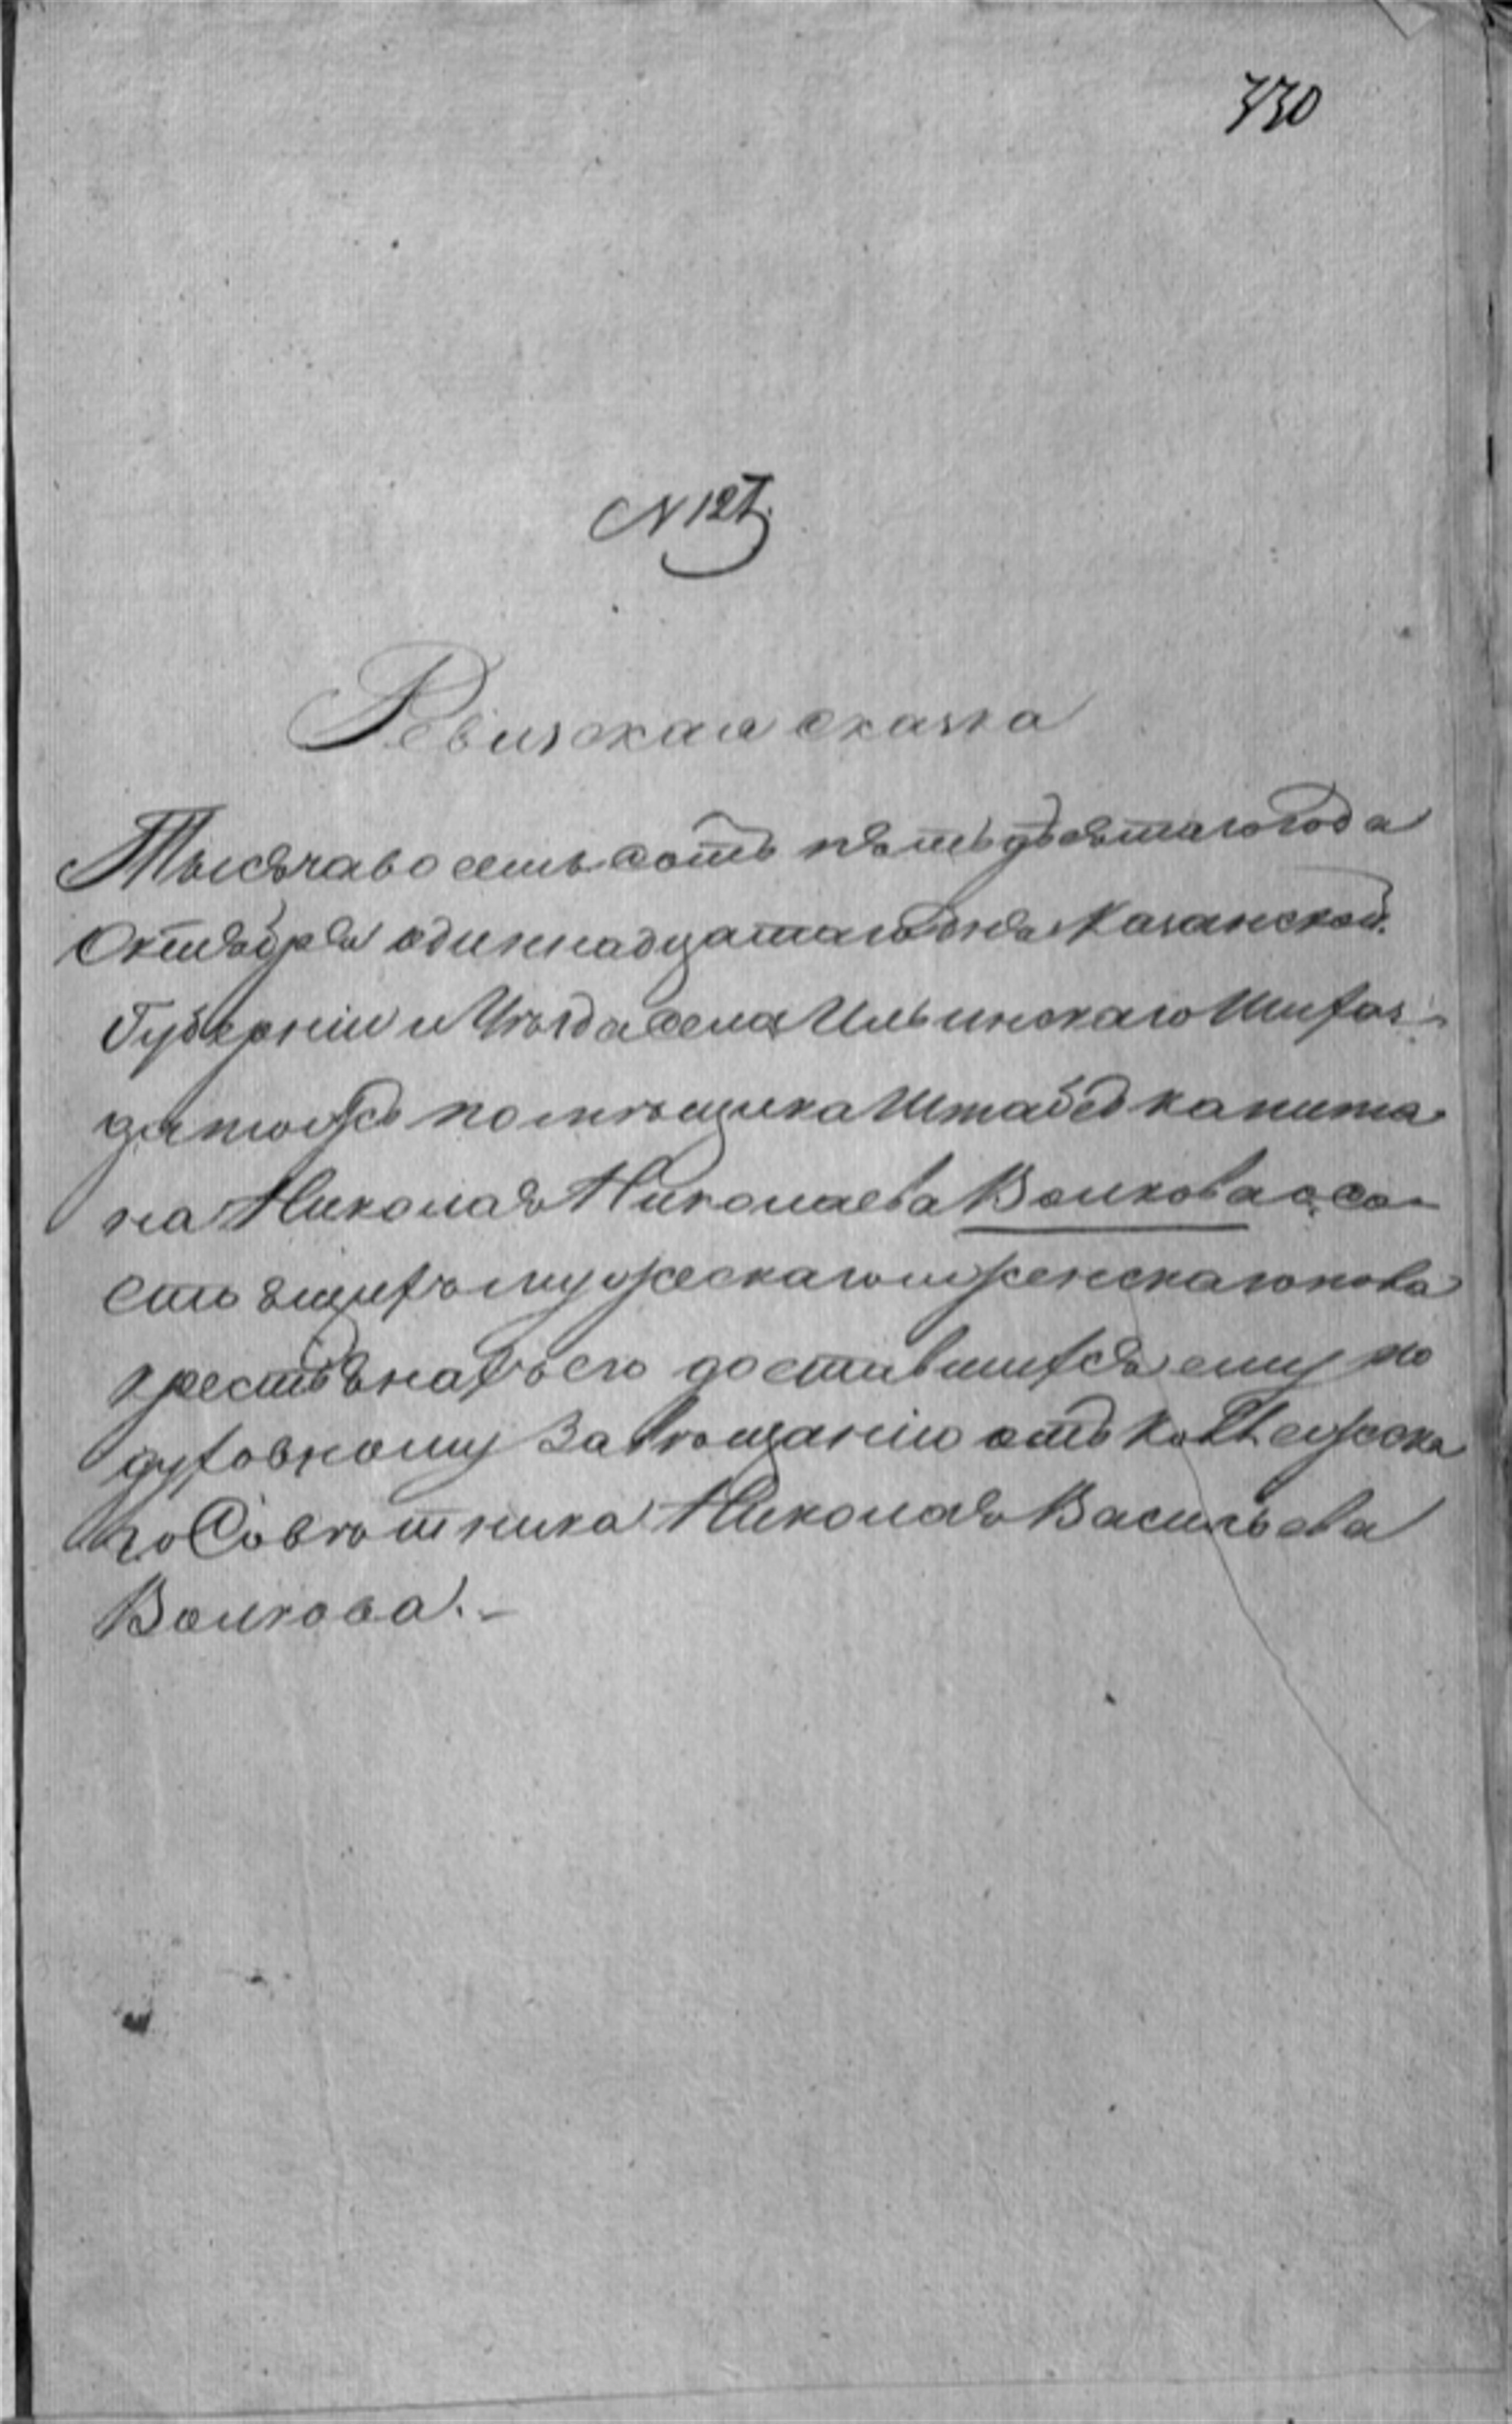 330
N 127.
Ревизская сказка
Тысяча восемь сотъ пятьдесятаго года
Октября одиннадцатаго дня Казанской
Губерніи и Уѣзда села Ильинскаго Шифоз
помѣщика Штабсъ капита
на Николая Николаева Волкова о со
стоящихъ мужескаго и женскаго пола
крестьянахъ его доставшихся ему по
духовному Завѣщанію отъ Коллежска
го Совѣтника Николая Васильева
Волкова. -